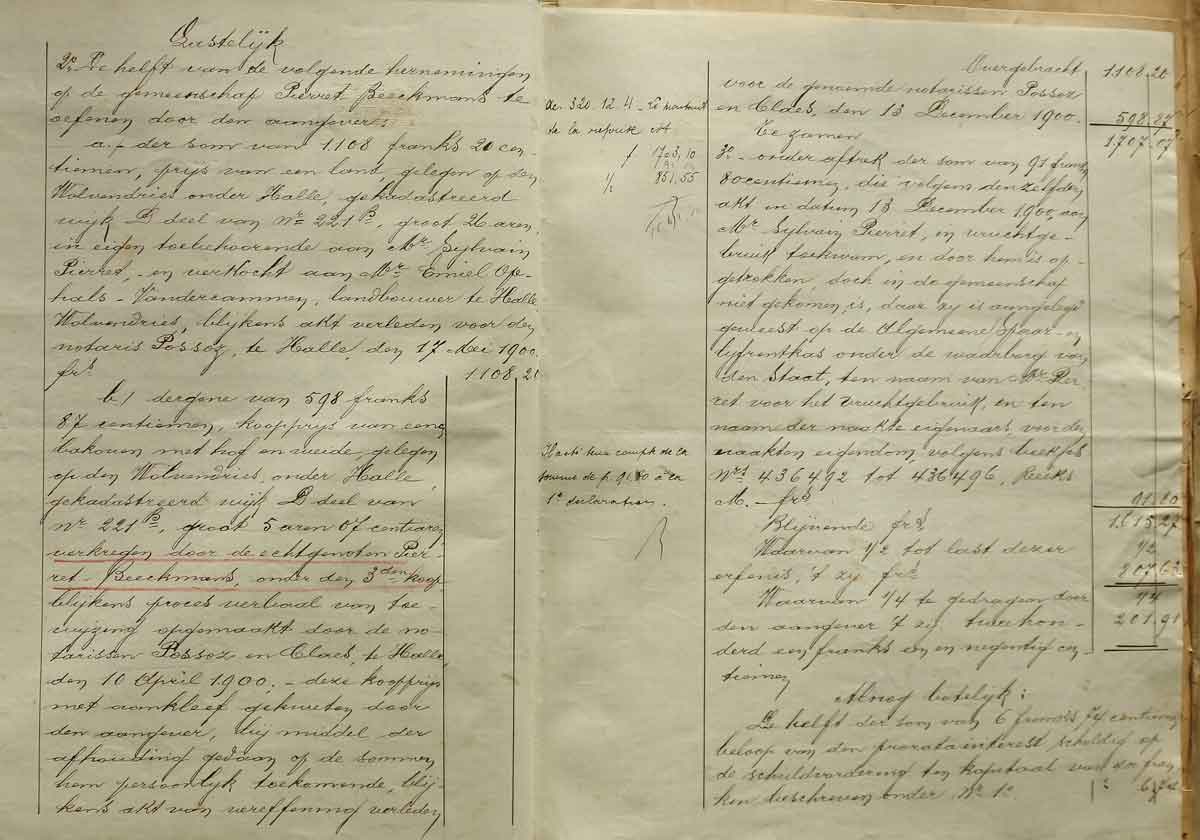 Lastelijk
2° De helft van de volgende hernemingen
op de gemeenschap Pierret Beeckmans te
oefenen door den aangever:
a.- der som van 1108 franks 20 cen-
tiemen, prijs van een land, gelegen op den
Wolvendries onder Halle, gekadastreerd
wijk D deel van Nr 221 B, groot 26 aren,
in eigen toebehoorende aan Mr Sylvain
Pierret, en verkocht aan Mr Emiel Op-
hals-Vandercammen, landbouwer te Halle
Wolvendries, blijkens akt verleden voor den
notaris Possoz, te Halle den 17 Mei 1900.
frs 1108,20
b/ dergene van 598 franks
87 centiemen, koopprijs van eene
bakoven met hof en weide, gelegen
op den Wolvendries, onder Halle,
gekadastreerd wijk D deel van
Nr 221 B, groot 5 aren 07 centiaren,
verkregen door de echtgenoten Pier-
ret-Beeckmans, onder den 3den koop
blijkens proces verbaal van toe-
wijzing opgemaakt door de no-
tarissen Possoz en Claes, te Halle,
den 10 April 1900. - deze koopprijs
met aankleef gekweten door
den aangever, bij middel der
afhouding gedaan op de sommen
hem persoonlijk toekomende, blij-
kens akt van vereffening verleden
Overgebracht 1108.20
voor de genoemde notarissen Possoz
en Claes, den 13 December 1900. 598.87
Te zamen 1707.07
3° - onder aftrek der som van 91 frank
80 centiemen, die volgens denzelfden
akt in datum 13 December 1900, aan
Mr Sylvain Pierret, in vruchtge-
bruik toekwam, en door hem is op-
getrokken, doch in de gemeenschap
niet gekomen is, daar zij is aangelegd
geweest op de Algemeene spaar- en
lijfrentkas onder de waarborg van
den Staat, ten naam van Mr Pier-
ret voor het vruchtgebruik, en ten
naam der naakte eigenaars, voor den
naakten eigendom, volgens boekjes
Nrs 436492 tot 436496, Reeks
M. - frs 91.80
Blijvende frs 1615.27
Waarvan 1/2 tot last dezer 1/2
erfenis, 't zij frs 807.63
Waarvan 1/4 te gedragen door 1/4
den aangever 't zij tweehon- 201.91
derd een franks een en negentig cen
tiemen
Alnog batelijk:
De helft der som van 6 franks 74 centiemen
beloop van den prorata interest, schuldig op
de schuldvordering ten kapitaal van fran
ken beschreven onder Nr 1°. 6,74
320.12.4 - Le montant
de la reprise est
f 1703,10
1/2 851,55
compte de la
somme de f. 91.80 à la
1e déclaration.